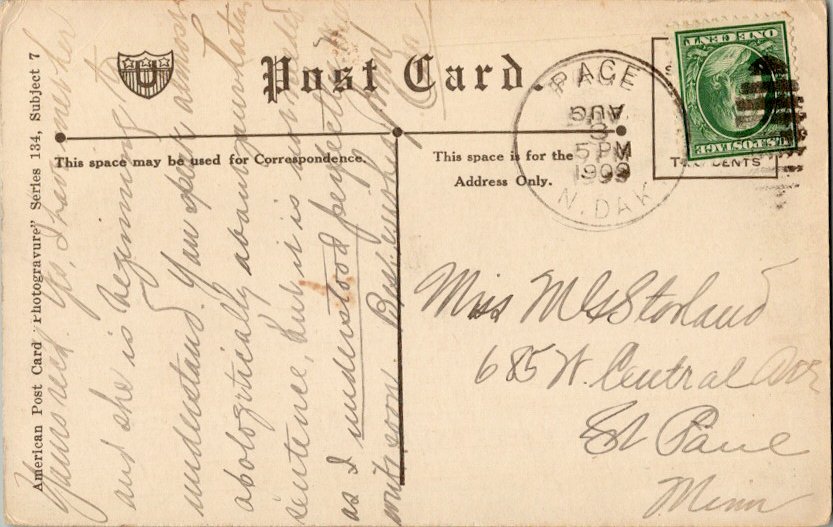 American Post Card "Photogravure" Series 134, Subject 7
U
Post Card.
This space may be used for Correspondence.
This space is for the
Address Only.
PAGE
AUG
3
5 PM
1909
N. DAK.
U.S. POSTAGE
ONE CENT
CENTS
Yours recd. Yes, I saw her
and she is beginning to
understand. You speak almost
abologetically about your latin
sentence, but it is not needed
as I understood perfectly.
write soon. Best wishes from
Miss M G Storland
685 W. Central Ave
St Paul
Minn